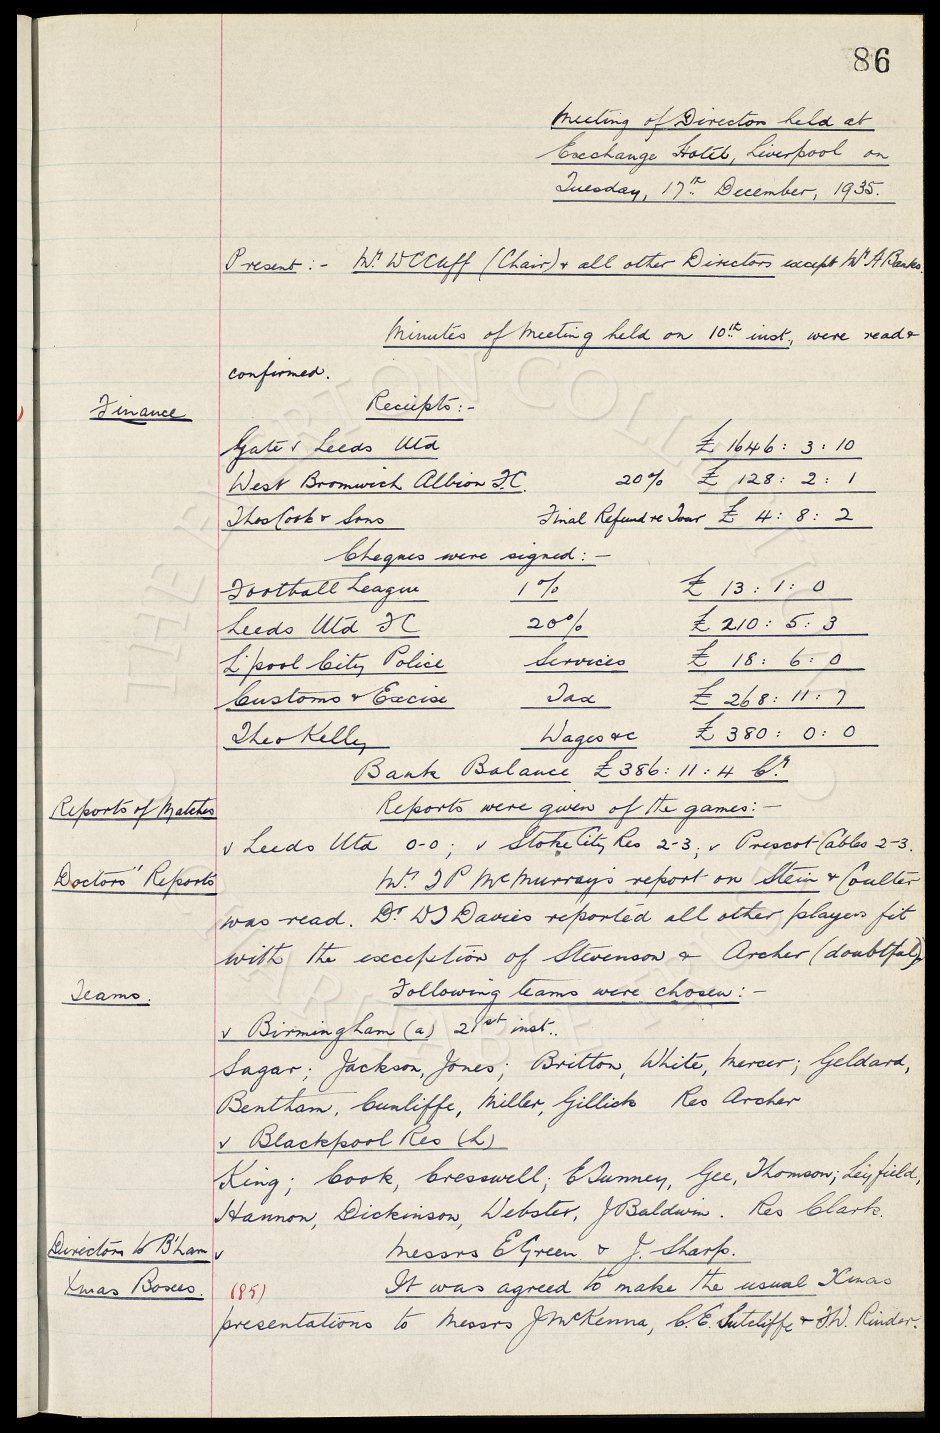 86
Meeting of Directors held at
Exchange Hotel, Liverpool on
Tuesday, 17th December, 1935.
Present:- Mr. W C Cuff (Chair) & all other Directors except Mr A Banks.
Minutes of Meeting held on 10th inst., were read &
confirmed.
Finance Receipts:-
Gate v Leeds Utd £ 1646 : 3 : 10
West Bromwich Albion F.C. 20% £ 128 : 2 : 1
Thos Cook & Sons Final Refund re Tour £ 4 : 8 : 2
Cheques were signed:-
Football League 1% £ 13 : 1 : 0
Leeds Utd F C 20% £ 210 : 5 : 3
L'pool City Police Services £ 18 : 6 : 0
Customs & Excise Tax £ 268 : 11 : 7
Theo Kelly Wages &c £ 380 : 0 : 0
Bank Balance £386 : 11 : 4 Cr.
Reports of Matches Reports were given of the games:-
v Leeds Utd 0-0; v Stoke City Res 2-3; v Prescot Cables 2-3.
Doctors" Reports Mr. T P McMurray's report on Stein & Coulter
was read. Dr D J Davies reported all other players fit
with the exception of Stevenson & Archer (doubtful).
Teams. Following teams were chosen:-
v Birmingham (a) 21st inst..
Sagar; Jackson, Jones; Britton, White, Mercer; Geldard,
Bentham, Cunliffe, Miller, Gillick Res Archer
v Blackpool Res (L)
King; Cook, Cresswell; E Tunney, Gee, Thomson; Leyfield,
Hannon, Dickinson, Webster, J Baldwin. Res Clark.
Directors to B'ham v Messrs E Green & J. Sharp.
Xmas Boxes. (85) It was agreed to make the usual Xmas
presentations to Messrs J McKenna, C. E. Sutcliffe & F.W. Rinder.